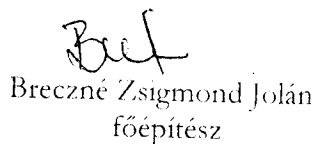 Breczné Zsigmond Jolán
főépítész